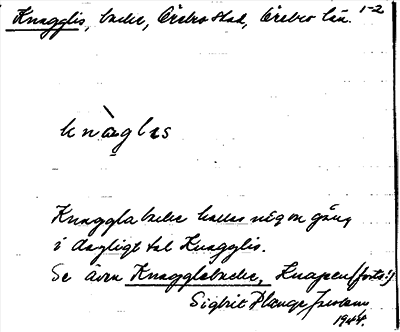 Knagglis, backe, Örebro stad, Örebro län. 1-2
knàglis
Knaggla backe kallas någon gång
i dagligt tal Knagglis.
Se även Knagglabacke, Knapen (forts.)
Sighrit Plenge
1944.